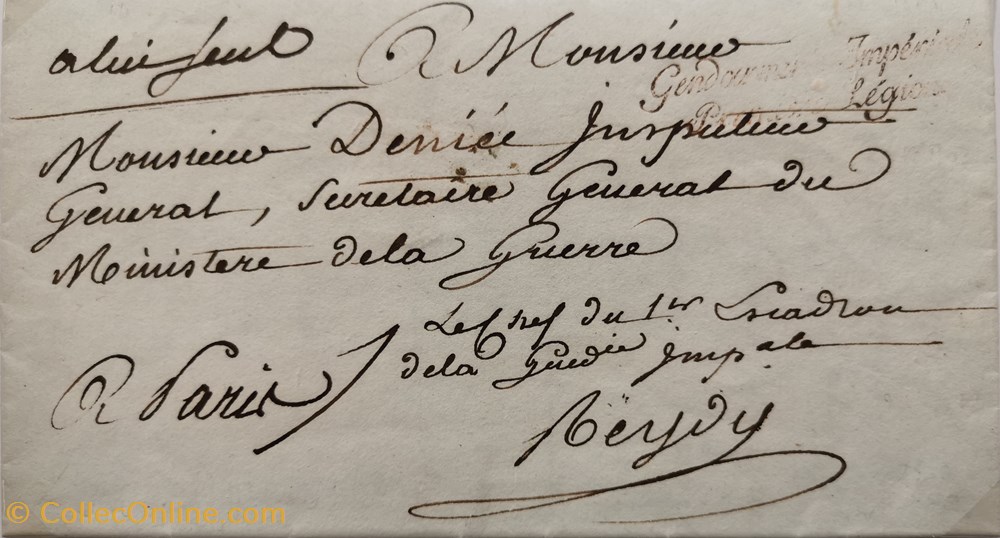 a lui seul
A Monsieur
Gendarmerie Impériale
Légion
Monsieur Denniée Inspecteur
General, Secretaire General du
Ministere de la Guerre
Le Chef du 1er Escadron
de la Gend.ie Imp.ale
A Paris /
Reydy
© CollecOnline.com